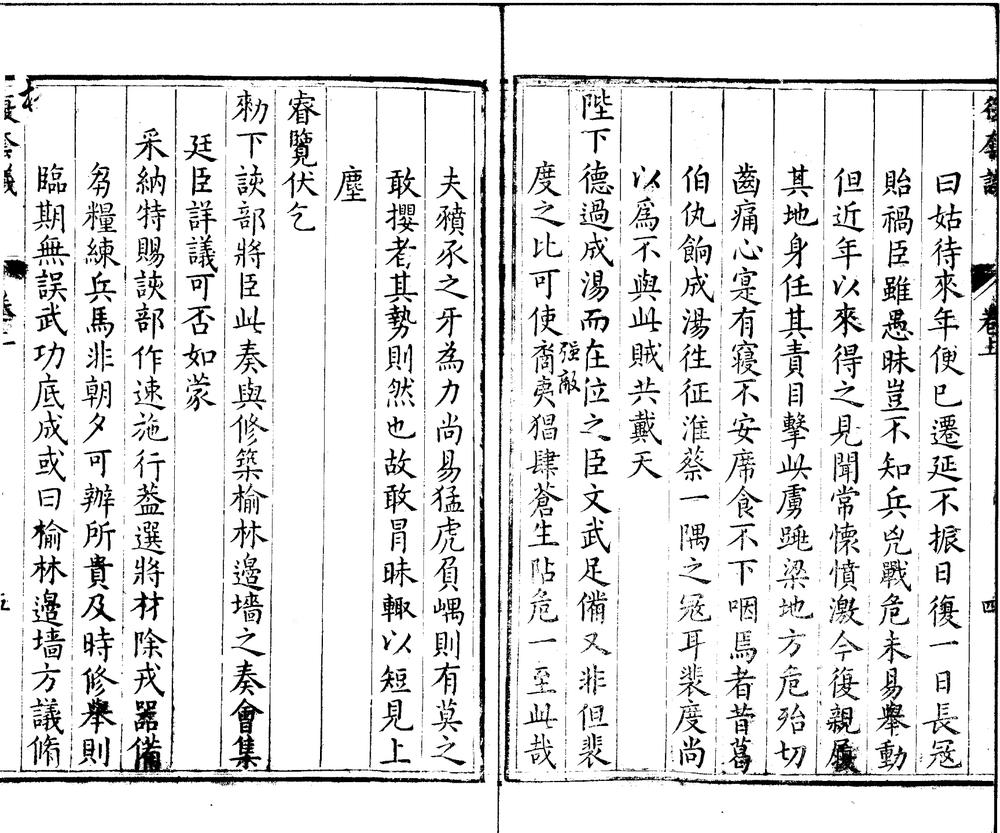 復套議 卷上 四
曰姑待來年便已遷延不振日復一日長冦
貽禍臣雖愚昧豈不知兵兇戰危未易舉動
但近年以來得之見聞常懷憤激今復親履
其地身任其責目擊此虜跳梁地方危殆切
齒痛心寔有寢不安席食不下咽焉者昔葛
伯仇餉成湯徃征淮蔡一隅之冦耳裴度尚
以爲不與此賊共戴天
陛下德過成湯而在位之臣文武足備又非但裴
度之比可使裔夷猖肆蒼生阽危一至此哉
强敵
夫豶豕之牙為力尚易猛虎負嵎則有莫之
敢攖者其勢則然也故敢冒昧輙以短見上
塵
睿覽伏乞
勑下該部將臣此奏與修築榆林邊墻之奏會集
廷臣詳議可否如蒙
采納特賜該部作速施行葢選將材除戎器備
芻糧練兵馬非朝夕可辦所貴及時修舉則
臨期無誤武功底成或曰榆林邊墻方議脩
復套議 五